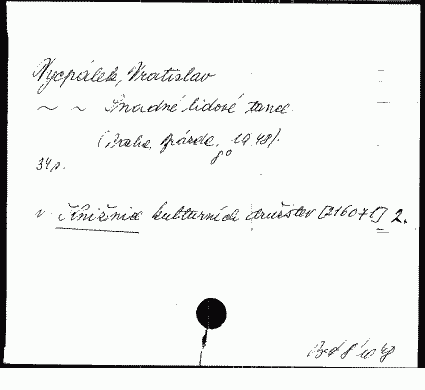 Vycpálek, Vratislav
~ ~ Snadné lidové tance
(Praha, Orbis, 1948).
8°
34 s.
v Knižnice kulturních družstev [216071] 2.
8 10 48